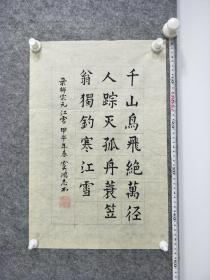 千山鳥飛絕萬徑
人踪灭孤舟蓑笠
翁獨釣寒江雪
宗元江雪 甲午年春